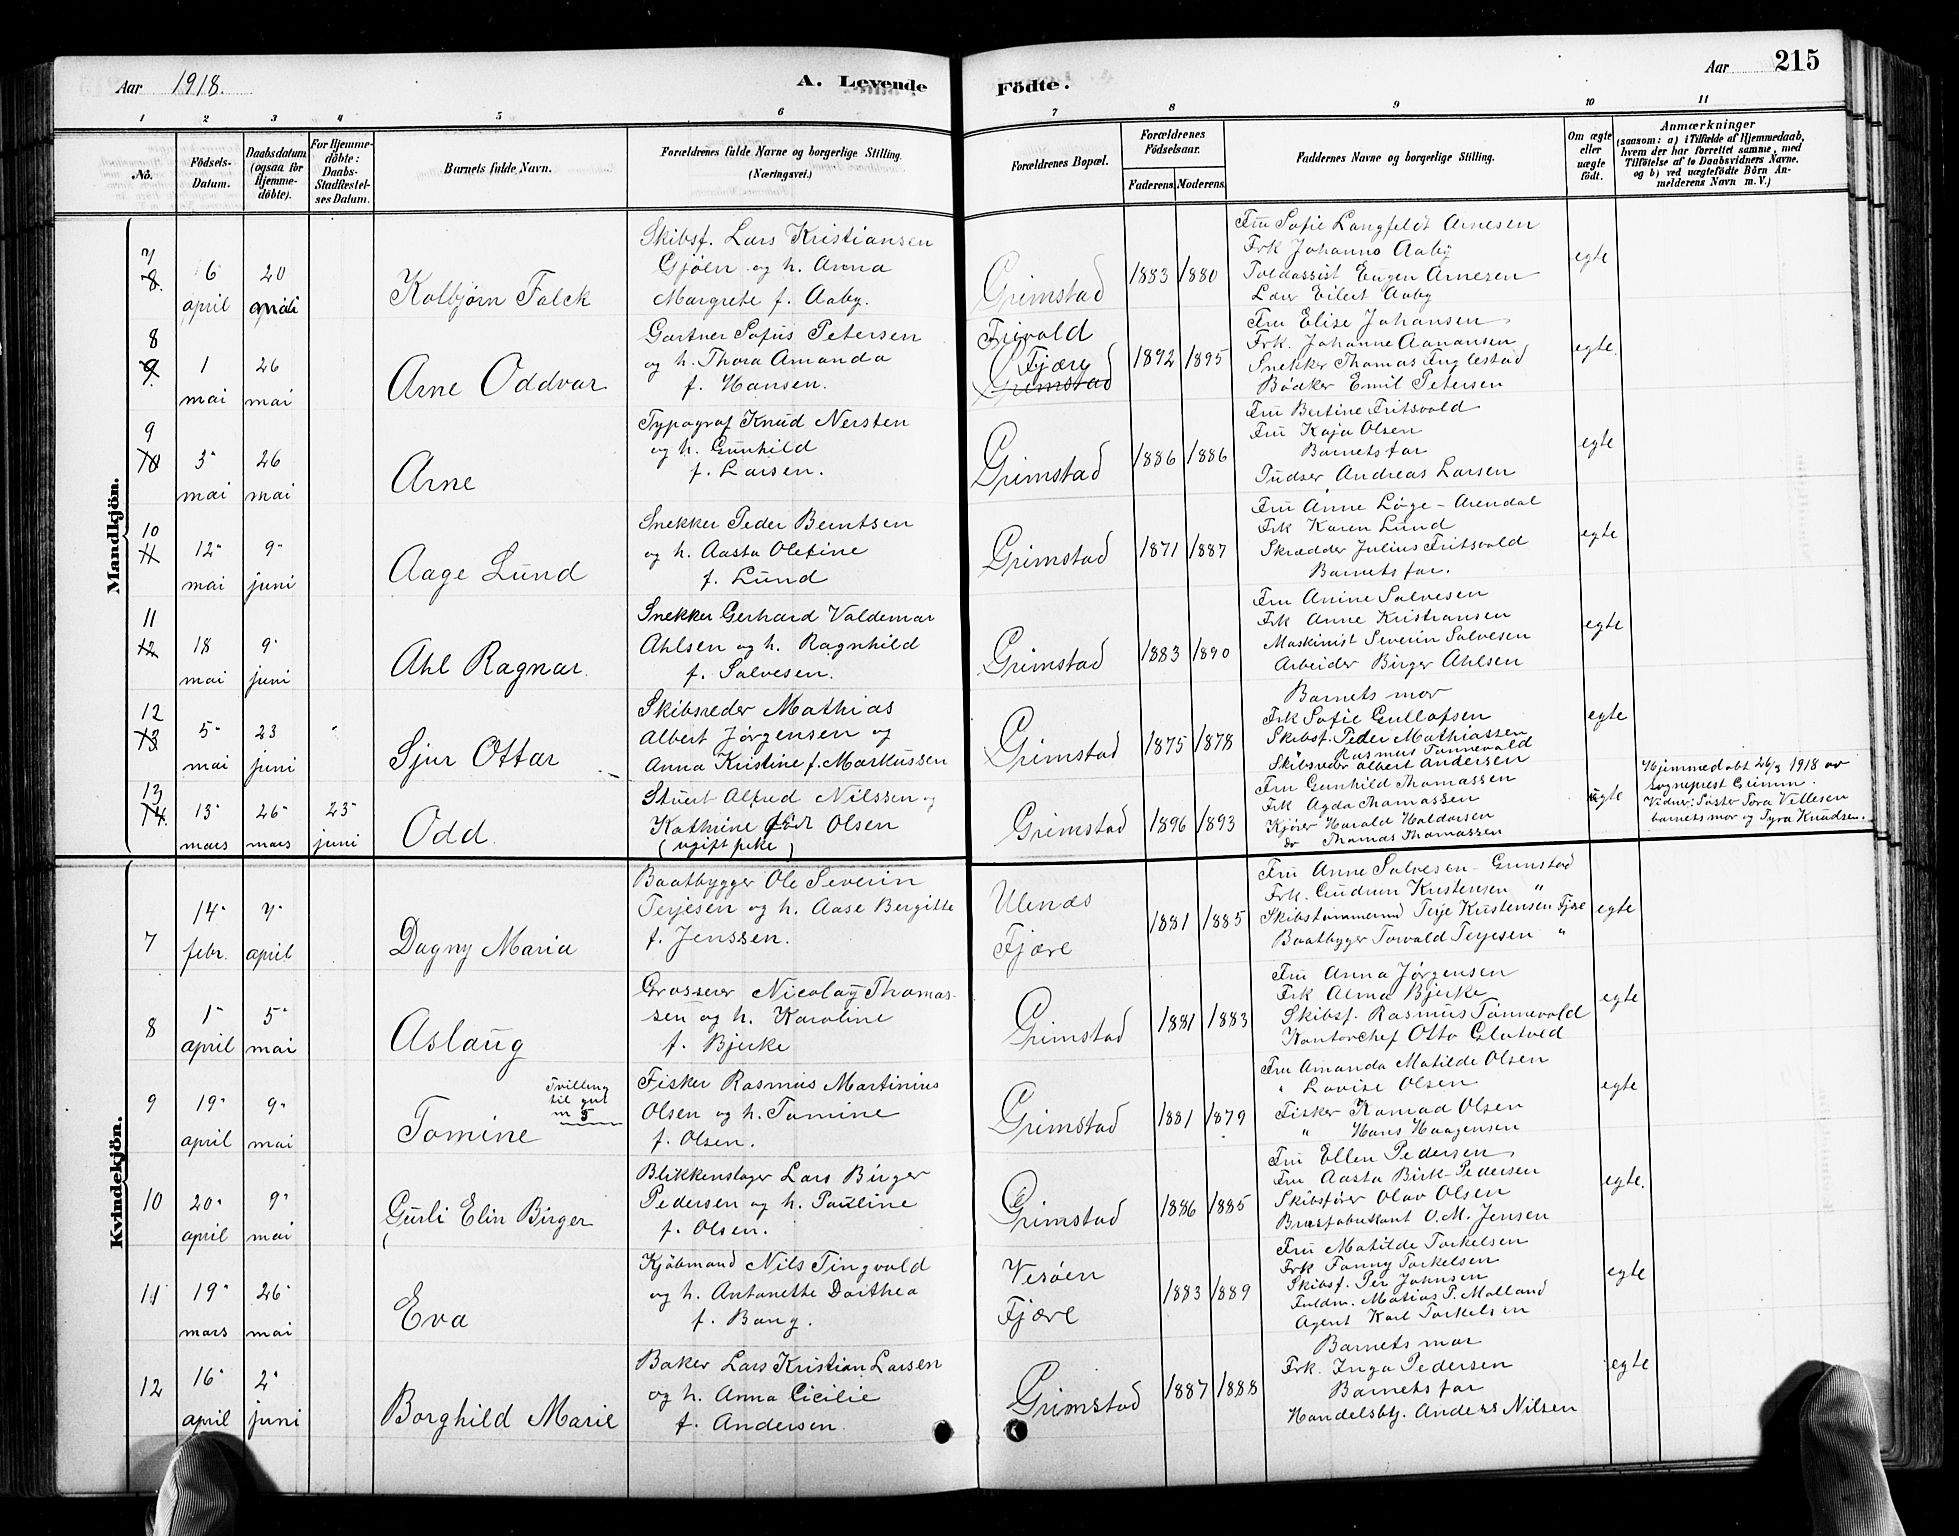 Aar 1918.
A. Levende
Födte.
Aar
215
1 2 3 4 5 6 7 8 9 10 11
No.
Födsels-Datum.
Daabsdatum (ogsaa for Hjemmedöbte).
For Hjemmedöbte: Daabs-Stadfestelses Datum.
Barnets fulde Navn.
Forældrenes fulde Navne og borgerlige Stilling.
(Næringsvei.)
Forældrenes Bopæl.
Forældrenes Födselsaar.
Faderens. Moderens.
Faddernes Navne og borgerlige Stilling.
Om ægte eller uægte födt.
Anmærkninger
(saasom: a) i Tilfælde af Hjemmedaab, hvem der har forrettet samme, med Tilföielse af to Daabsvidners Navne, og b) ved uægtefödte Börn Anmelderens Navn m. V.)
Mandkjön.
7
8.
6 april
20 april
Kolbjørn Falck
Skibsf. Lars Kristiansen
Gjøen og h. Anna
Margrete f. Aaby.
Grimstad
1883
1880
Fru Sofie Langfeldt Arnesen
Frk Johanne Aaby
Toldassist Eugen Arnesen
Lærer Eilert Aaby
egte
8
9
1 mai
26 mai
Arne Oddvar
Gartner Sofus Petersen
og h. Thora Amanda
f. Hansen.
Fjære
Grimstad
1892
1895
Fru Elise Johansen
Frk. Johanne Aanansen
Snekker Thomas Fuglestad
Bødker Emil Petersen
egte.
9
10
3" mai
26 mai
Arne
Typograf Knud Nersten
og h. Gunhild
f. Larsen.
Grimstad
1886
1886
Fru Bertine Fritsvold
Fru Kaja Olsen
Barnets far
Pudser Andreas Larsen
egte
10
11
12" mai
9" juni
Aage Lund
Snekker Peder Berntsen
og h. Aasta Olefine
f. Lund
Grimstad
1871
1887
Fru Anne Løge - Arendal
Frk Karen Lund
Skrædder Julius Fritsvold
Barnets far.
egte
11
12
18 mai
9" juni
Ahl Ragnar.
Snekker Gerhard Valdemar
Ahlsen og h. Ragnhild
f. Salvesen.
Grimstad
1883
1890
Fru Anine Salvesen
Frk Anne Kristiansen
Maskinist Severin Salvesen
Arbeider Birger Ahlsen
egte
12
13
5" mai
23 juni
Sjur Ottar
Skibsreder Mathias
Albert Jørgensen og
Anna Kristine f. Markussen
Grimstad
1875
1878
Barnets mor
Frk Sofie Gullofsen
Skibsf. Peder Mathiassen
" Rasmus Tønnevold
Skibsreder Albert Andersen
egte
13
14.
13" mars
26" mars
23" juni
Odd.
Stuert Alfred Nilssen og
Kathrine Olsen
(ugift pike)
Grimstad
1896
1893
Fru Gunhild Thomassen
Frk Agda Thomassen
Kjører Harald Haldorsen
do Thomas Thomassen
uegte
Hjemmedøbt 26/3 1918 av
sogneprest Grimm
Vidner: Søster Tora Villesen
barnets mor og Tyra Knudsen.
Kvindekjön.
7
14" febr.
7" april
Dagny Maria
Baatbygger Ole Severin
Terjesen og h. Aase Bergitte
f. Jenssen.
Ulenæs
Fjære
1881
1885
Fru Anne Salvesen - Grimstad
Frk. Gudrun Kristensen "
Skibstømmermd Terje Kristensen Fjære
Baatbygger Torvald Terjesen "
egte
8
1" april
5" mai
Aslaug
Grosserer Nicolay Thomas-
sen og h. Karoline
f. Bjerke
Grimstad
1881
1883
Fru Anna Jørgensen
Frk Alma Bjerke
Skibsf. Rasmus Tønnevold
Kontorchef Otto Glutved
egte
9
19" april
9" mai
Tomine
Tvilling
til gut
n 5
Fisker Rasmus Martinius
Olsen og h. Tomine
f. Olsen.
Grimstad
1881
1879
Fru Amanda Matilde Olsen
" Lovise Olsen
Fisker Konrad Olsen
" Hans Haagensen
egte
10
20" april
9" mai
Gurli Elin Birger
Blikkenslager Lars Birger
Pedersen og h. Pauline
f. Olsen.
Grimstad
1886
1885
Fru Ellen Pedersen
Fru Aasta Birk-Pedersen
Skibsfører Olav Olsen
Brusfabrikant O. M. Jensen
egte.
11
19" mars
26" mai
Eva
Kjøbmand Nils Tingvold
og h. Antonette Dorthea
f. Bang.
Vesøen
Fjære
1883
1889
Fru Matilde Torkelsen
Frk Fanny Torkelsen
Skibsf. Per Johnsen
Fuldm. Matias P. Molland
Agent Karl Torkelsen
egte
12
16" april
2" juni
Borghild Marie
Baker Lars Kristian Larsen
og h. Anna Cicilie
f. Andersen.
Grimstad
1887
1888
Barnets mor
Frk. Inga Pedersen
Barnets far
Handelsbtj. Anders Nilsen
egte